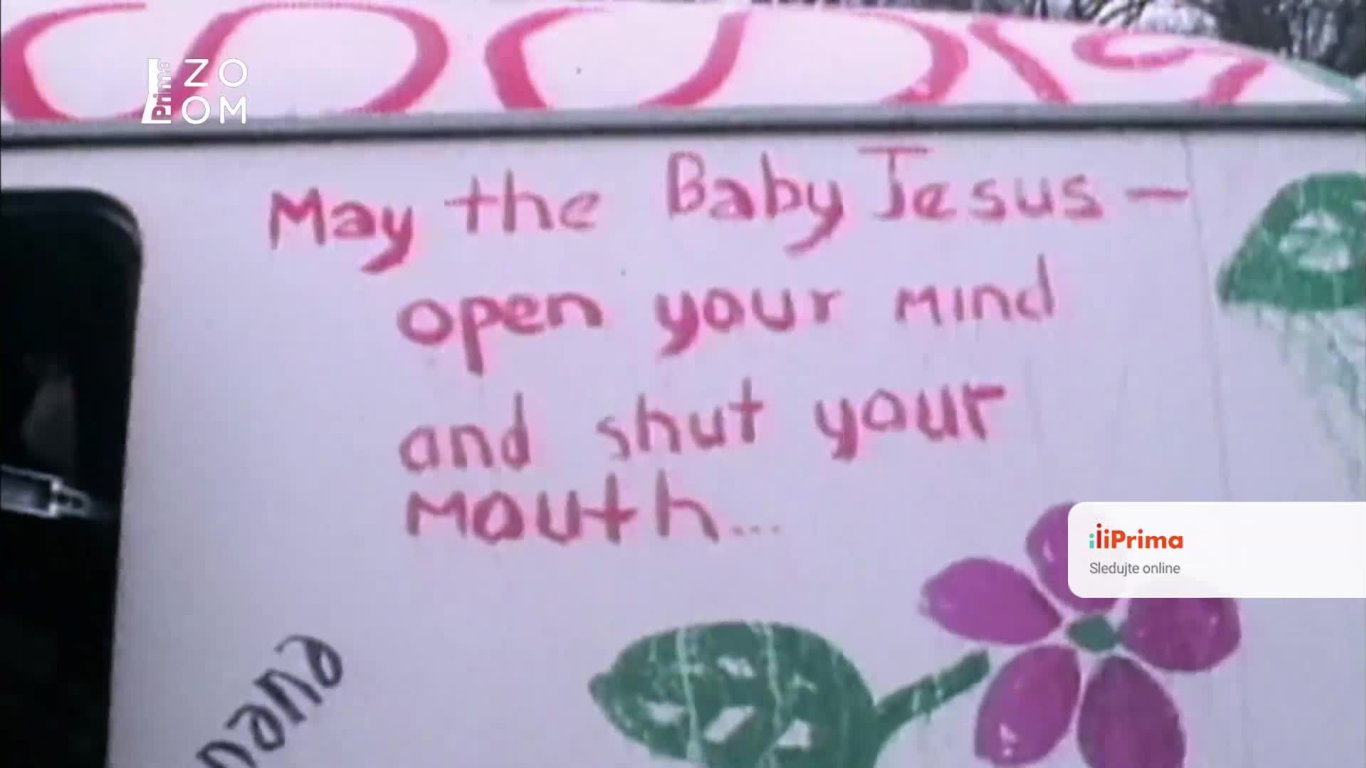 Prima ZOOM
May the Baby Jesus —
open your mind
and shut your
mouth...
iPrima
Sledujte online